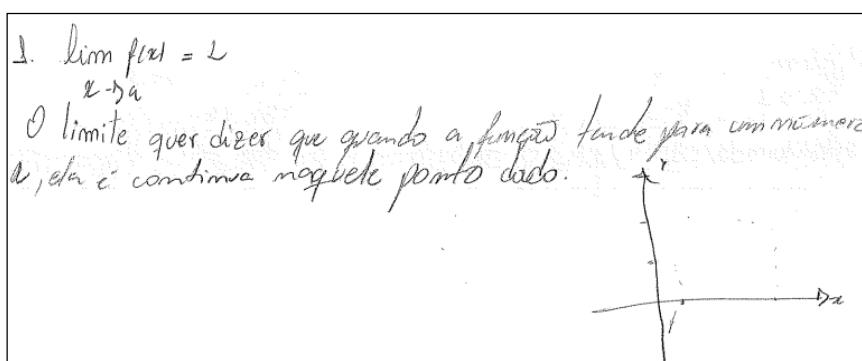 1. lim f(x) = L
x→a
O limite quer dizer que quando a função tende para um número
a, ela é continua naquele ponto dado.
y
x